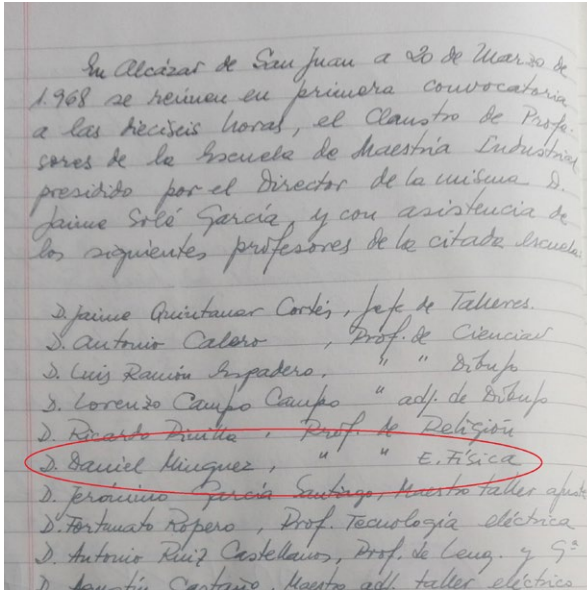 En Alcázar de San Juan a 20 de Marzo de
1.968 se reúnen en primera convocatoria
a las dieciseis horas, el Claustro de Profe-
sores de la Escuela de Maestría Industrial
presidido por el Director de la misma D.
Jaime Solé García, y con asistencia de
los siguientes profesores de la citada escuela.
D. Jaime Quintanar Cortés, Jefe de Talleres.
D. Antonio Calero , Prof. de Ciencias
D. Luis Ramón Espadero. " " Dibujo
D. Lorenzo Campo Campo " adj. de Dibujo
D. Ricardo , Prof. de Religión
D. Daniel Minguez, " " E. Física
D. Jerónimo García Santiago, Maestro taller
D. Fortunato Ropero, Prof. Tecnología eléctrica
D. Antonio Ruiz Castellanos, Prof. de Leng. y Gª
D. Agustín Castaño, Maestro adj. taller eléctrico